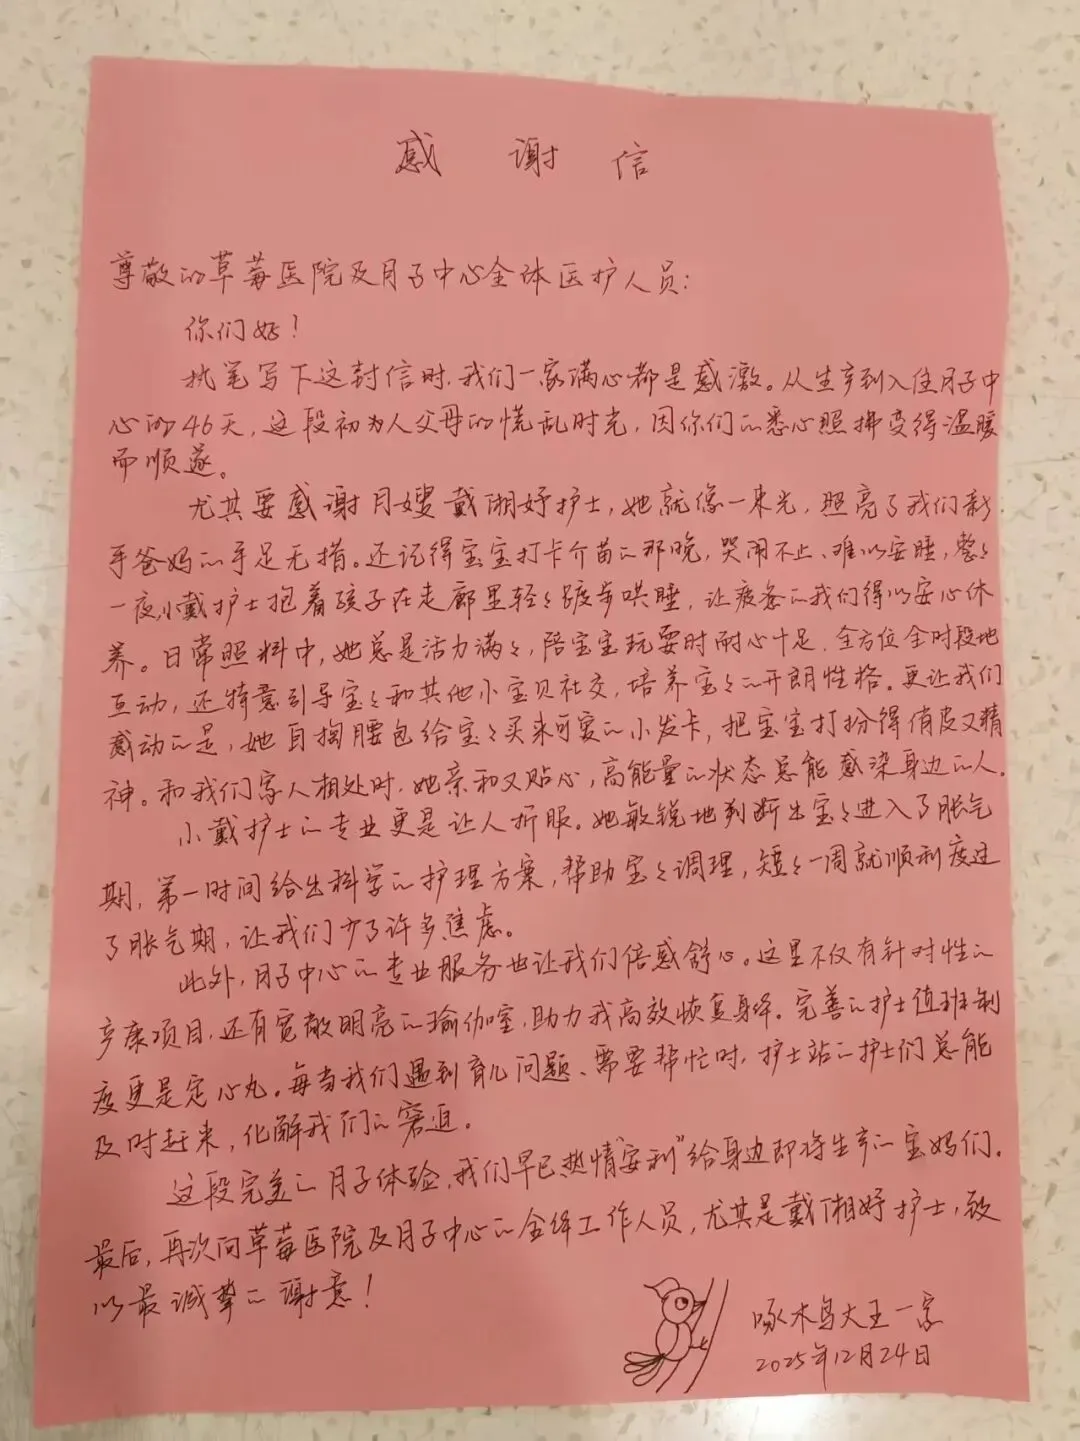 感谢信
尊敬的草莓医院及月子中心全体医护人员：
你们好！
执笔写下这封信时，我们一家满心都是感激。从生产到入住月子中
心的46天，这段初为人父母的慌乱时光，因你们的悉心照拂变得温暖
而顺遂。
尤其要感谢月嫂戴湘妤护士，她就像一束光，照亮了我们新
手爸妈的手足无措。还记得宝宝打卡介苗的那晚，哭闹不止、难以安睡，整々
一夜，小戴护士抱着孩子在走廊里轻々踱步哄睡，让疲惫的我们得以安心休
养。日常照料中，她总是活力满々，陪宝宝玩耍时耐心十足，全方位全时段地
互动，还特意引导宝々和其他小宝贝社交，培养宝々的开朗性格。更让我们
感动的是，她自掏腰包给宝々买来可爱的小发卡，把宝宝打扮得俏皮又精
神。和我们家人相处时，她亲和又贴心，高能量的状态总能感染身边的人。
小戴护士的专业更是让人折服。她敏锐地判断出宝々进入了胀气
期，第一时间给出科学的护理方案，帮助宝々调理，短々一周就顺利度过
了胀气期，让我们少了许多焦虑。
此外，月子中心的专业服务也让我们倍感舒心。这里不仅有针对性的
产康项目，还有宽敞明亮的瑜伽室，助力我高效恢复身体。完善的护士值班制
度更是定心丸。每当我们遇到育儿问题、需要帮忙时，护士站的护士们总能
及时赶来，化解我们的窘迫。
这段完美的月子体验，我们早已热情“安利”给身边即将生产的宝妈们。
最后，再次向草莓医院及月子中心的全体工作人员，尤其是戴湘妤护士，致
以最诚挚的谢意！
啄木鸟大王一家
2025年12月24日